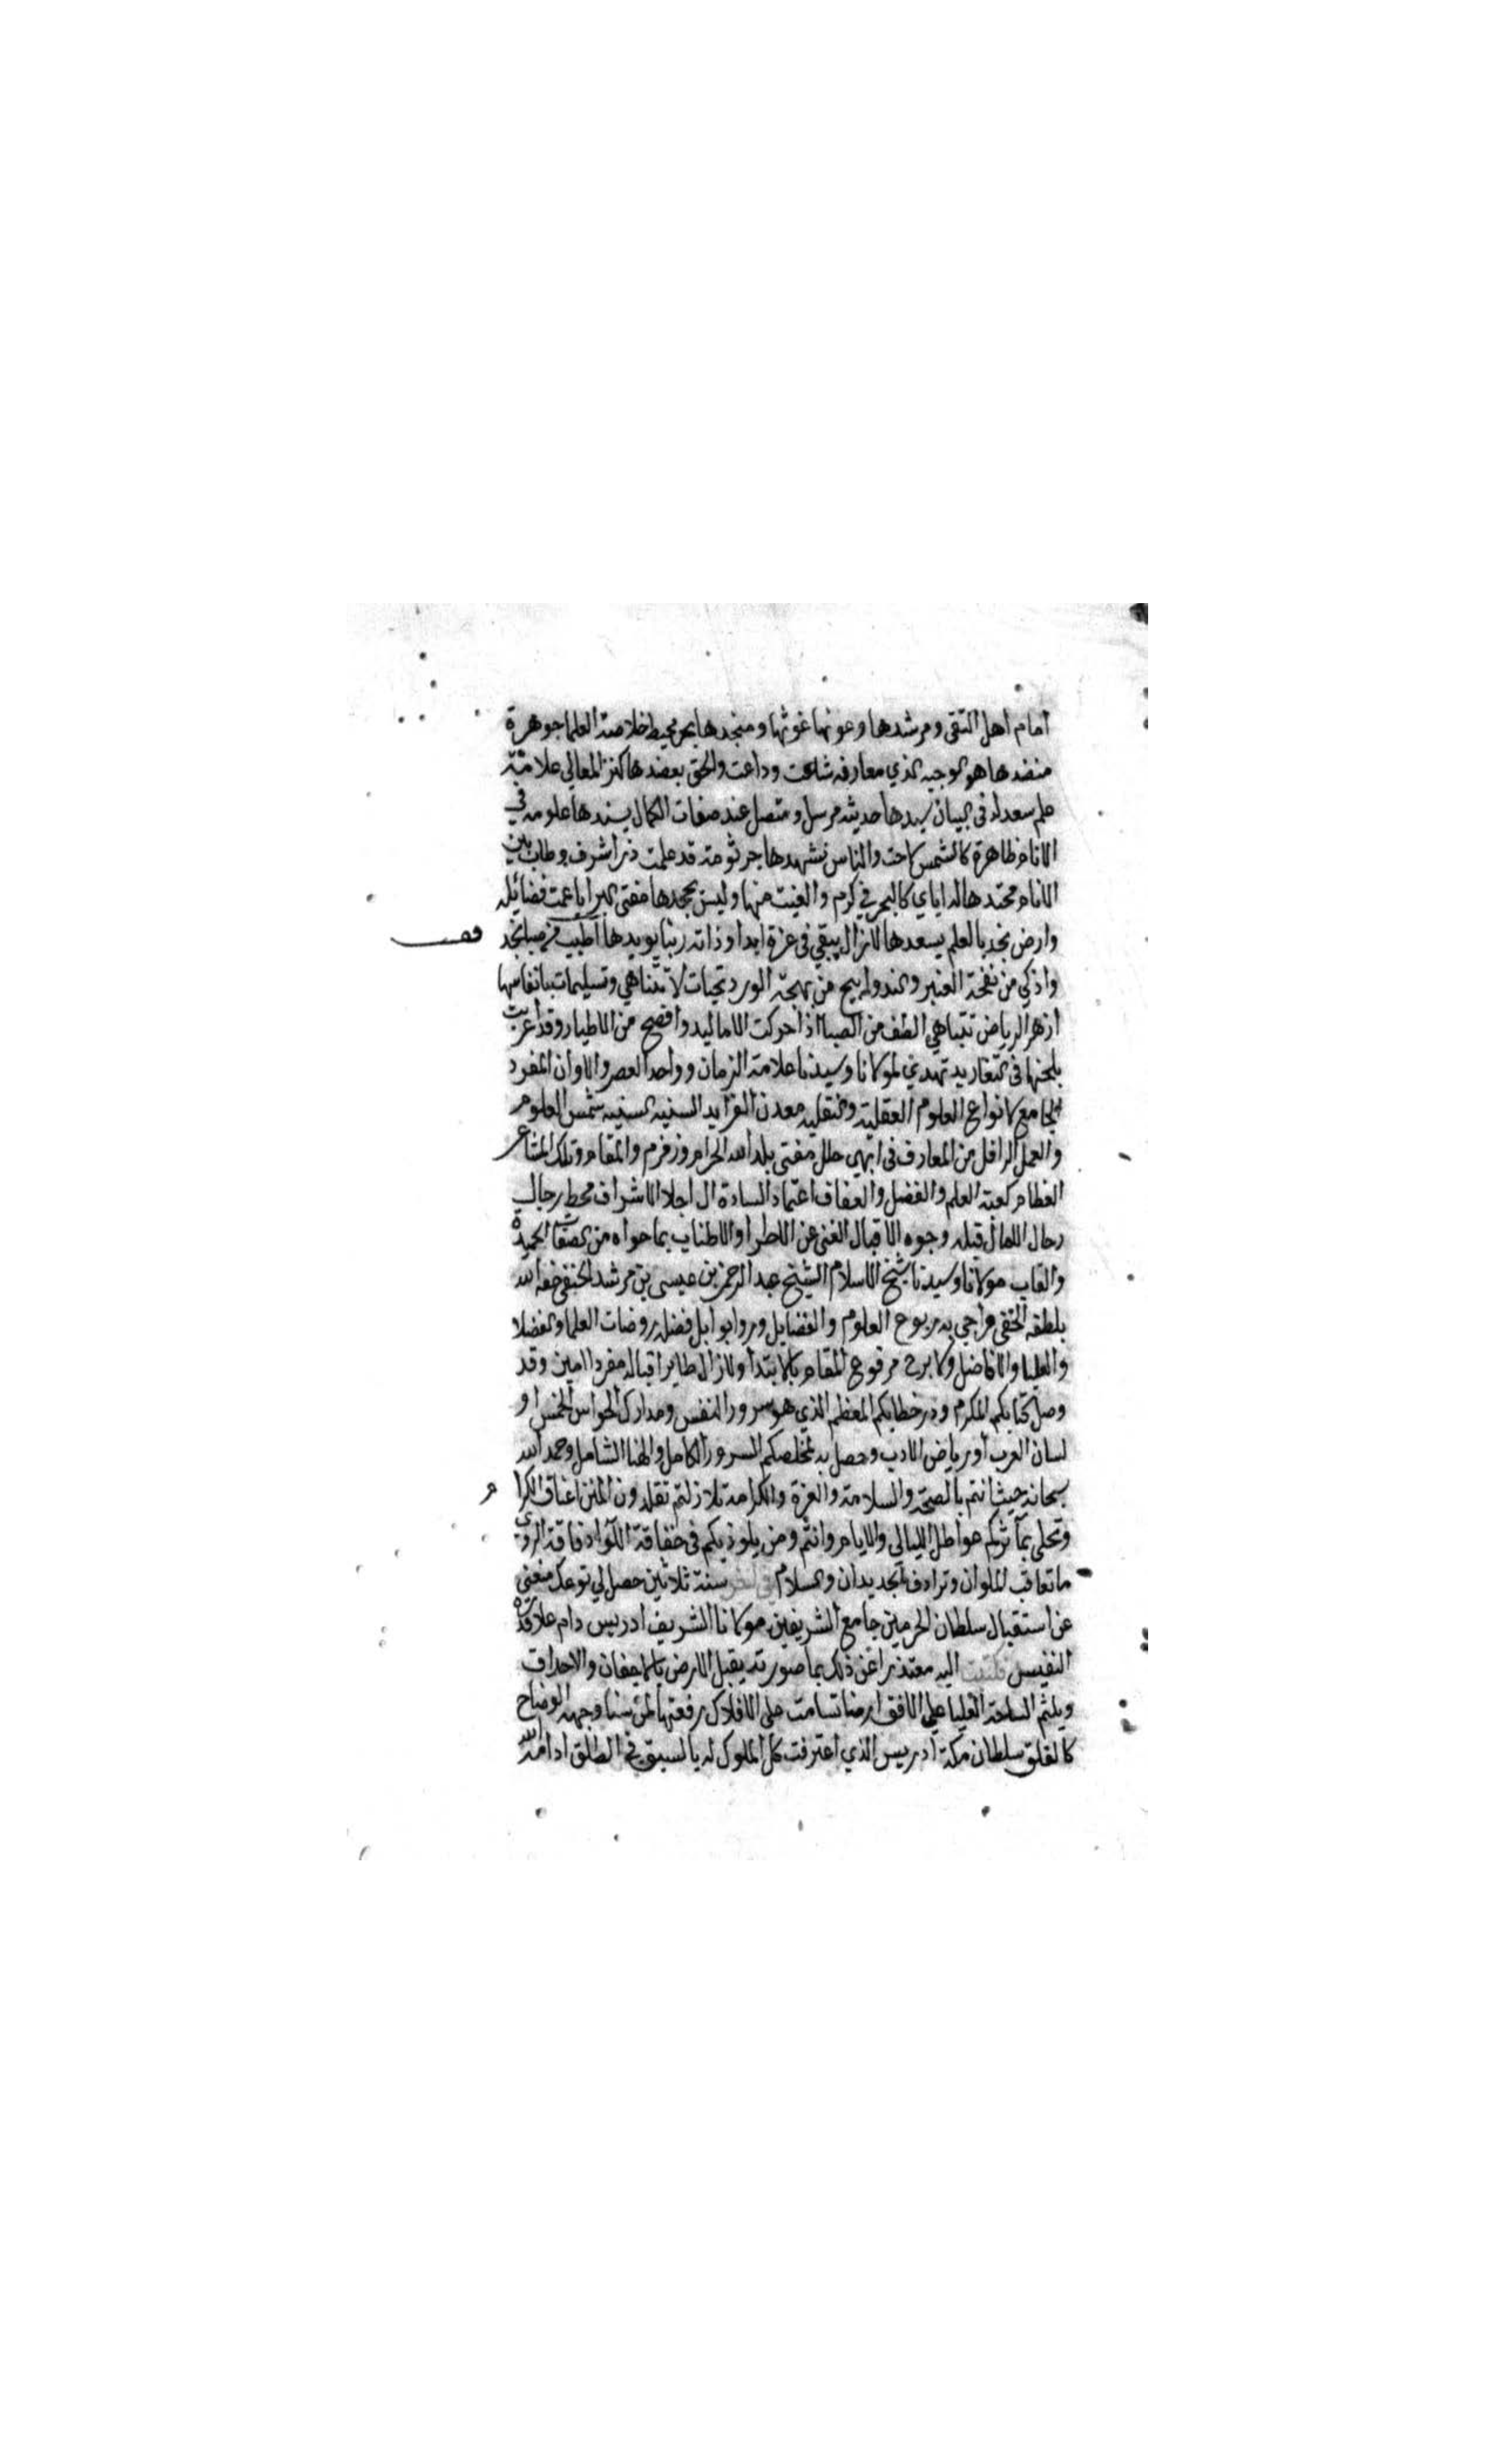 امام اهل التقى ومرشدها وعونها غوثها ومنجدها بحر محيط خلاصة العلما جوهرة
منضدها هو الوجيه الذي معارفه شاعت وذاعت والحق يعضدها كنز المعالي علامة
علم سعد له في البيان حديثه مرسل ومتصل عند صفات الكمال يسندها علومه في
الانام ظاهرة كالشمس لاحت والناس تشهدها جرثومة قد علمت ذرا شرف وطاب بين
الانام محتدها له اياي كالبحر في كرم والغيث منها وليس يجحدها مفتي البرايا عمت فضائله
وارض نجد بالعلم يسعدها لازال يبقي في عزة ابدا وذاته ربنا يويدها اطيب من صبا نجد
واذكي من نفحة العنبر والند وابهج من بهجة الورد تحيات لا تتناهي وتسليمات بانفاسها
ازهر الرياض تتباهي الطف من الصبا اذا حركت الاماليد وافصح من الاطيار وقد اعربت
بلحنها في التغاريد تهدي لمولانا وسيدنا علامة الزمان وواحد العصر والاوان المفرد
الجامع لانواع العلوم العقلية والنقلية معدن الفرايد السنيه السنيه شمس العلوم
والعمل الرافل من المعارف في ابهي حلل مفتي بلد الله الحرام وزمزم والمقام وتلك المشاعر
العظام كعبة العلم والفضل والعفاف اعتماد السادة ال اجلا الاشراف محط رجال
رحال الامال قبلة وجوه الاقبال الغني عن الاطرا والاطناب بما حواه من الصفات الحميدة
والقاب مولانا وسيدنا شيخ الاسلام الشيخ عبد الرحمن بن عيسى بن مرشد الحنفي خفه الله
بلطفه الخفي واحي به ربوع العلوم والفضايل وروا بوابل فضله روضات العلما والفضلا
والعليا والافاضل ولا برح مرفوع المقام بالابتدا ولازال طاير اقباله مفردا امين وقد
وصل كتابكم المكرم ودر خطابكم المعظم الذي هو سرور النفس ومدارك الحواس الخمس او
لسان العرب او رياض الادب وحصل به لمخلصكم السرور الكامل والهنا الشامل وحمد الله
سبحانه حيث انتم بالصحة والسلامة والعزة والكرامة لا زلتم تقلدون المنن اعناق الكرام
وتحلي بمآثركم عواطل الليالي والايام وانتم ومن يلوذ بكم في خفاقة اللوا دفاقة الروي
ما تعاقب الملوان وترادف الجديدان والسلام سنة ثلاثين حصل لي توعك منعني
عن استقبال سلطان الحرمين جامع الشريفين مولانا الشريف ادريس دام علا قدره
النفيس فكتبت اليه معتذرا عن ذلك بما صورته يقبل الارض بالاجفان والاحداق
ويلثم الساحة العليا على الافق ارضا تسامت على الافلاك رفعتها لمن سنا وجهه الوضاح
كالفلق سلطان مكة ادريس الذي اعترفت كل الملوك له بالسبق في الطلق ادامه الله